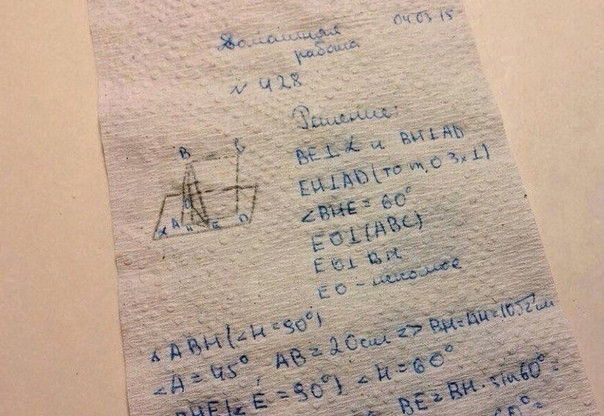 04.03.15
Домашняя
работа
N 428
Решение:
BE⊥α и BH⊥AD
EH⊥AD (по т. о 3х⊥)
∠BHE = 60°
EO⊥(ABC)
EO⊥BH
EO - искомое
B C
O
α A H E D
△ABH (∠H=90°)
∠A=45°, AB=20см => BH=AH=10√2см
BHE (∠E=90°) ∠H=60°
BE=BH·sin60°=